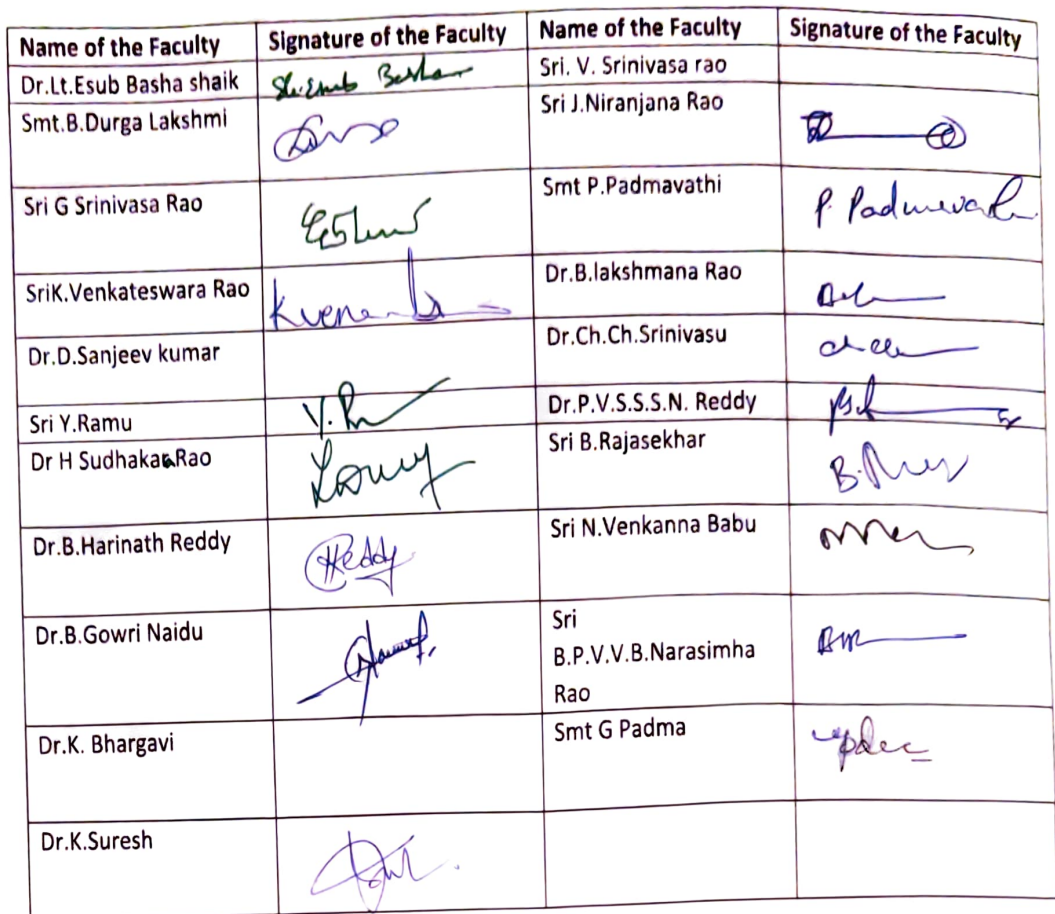 Name of the Faculty Signature of the Faculty Name of the Faculty Signature of the Faculty
Dr.Lt.Esub Basha shaik Sk.Esub Basha Sri. V. Srinivasa rao
Smt.B.Durga Lakshmi Sri J.Niranjana Rao
Sri G Srinivasa Rao Smt P.Padmavathi P. Padmavathi
SriK.Venkateswara Rao Dr.B.lakshmana Rao
Dr.D.Sanjeev kumar Dr.Ch.Ch.Srinivasu
Sri Y.Ramu Dr.P.V.S.S.S.N. Reddy
Dr H Sudhakar Rao Sri B.Rajasekhar
Dr.B.Harinath Reddy Reddy Sri N.Venkanna Babu
Dr.B.Gowri Naidu Sri
B.P.V.V.B.Narasimha
Rao
Dr.K. Bhargavi Smt G Padma
Dr.K.Suresh